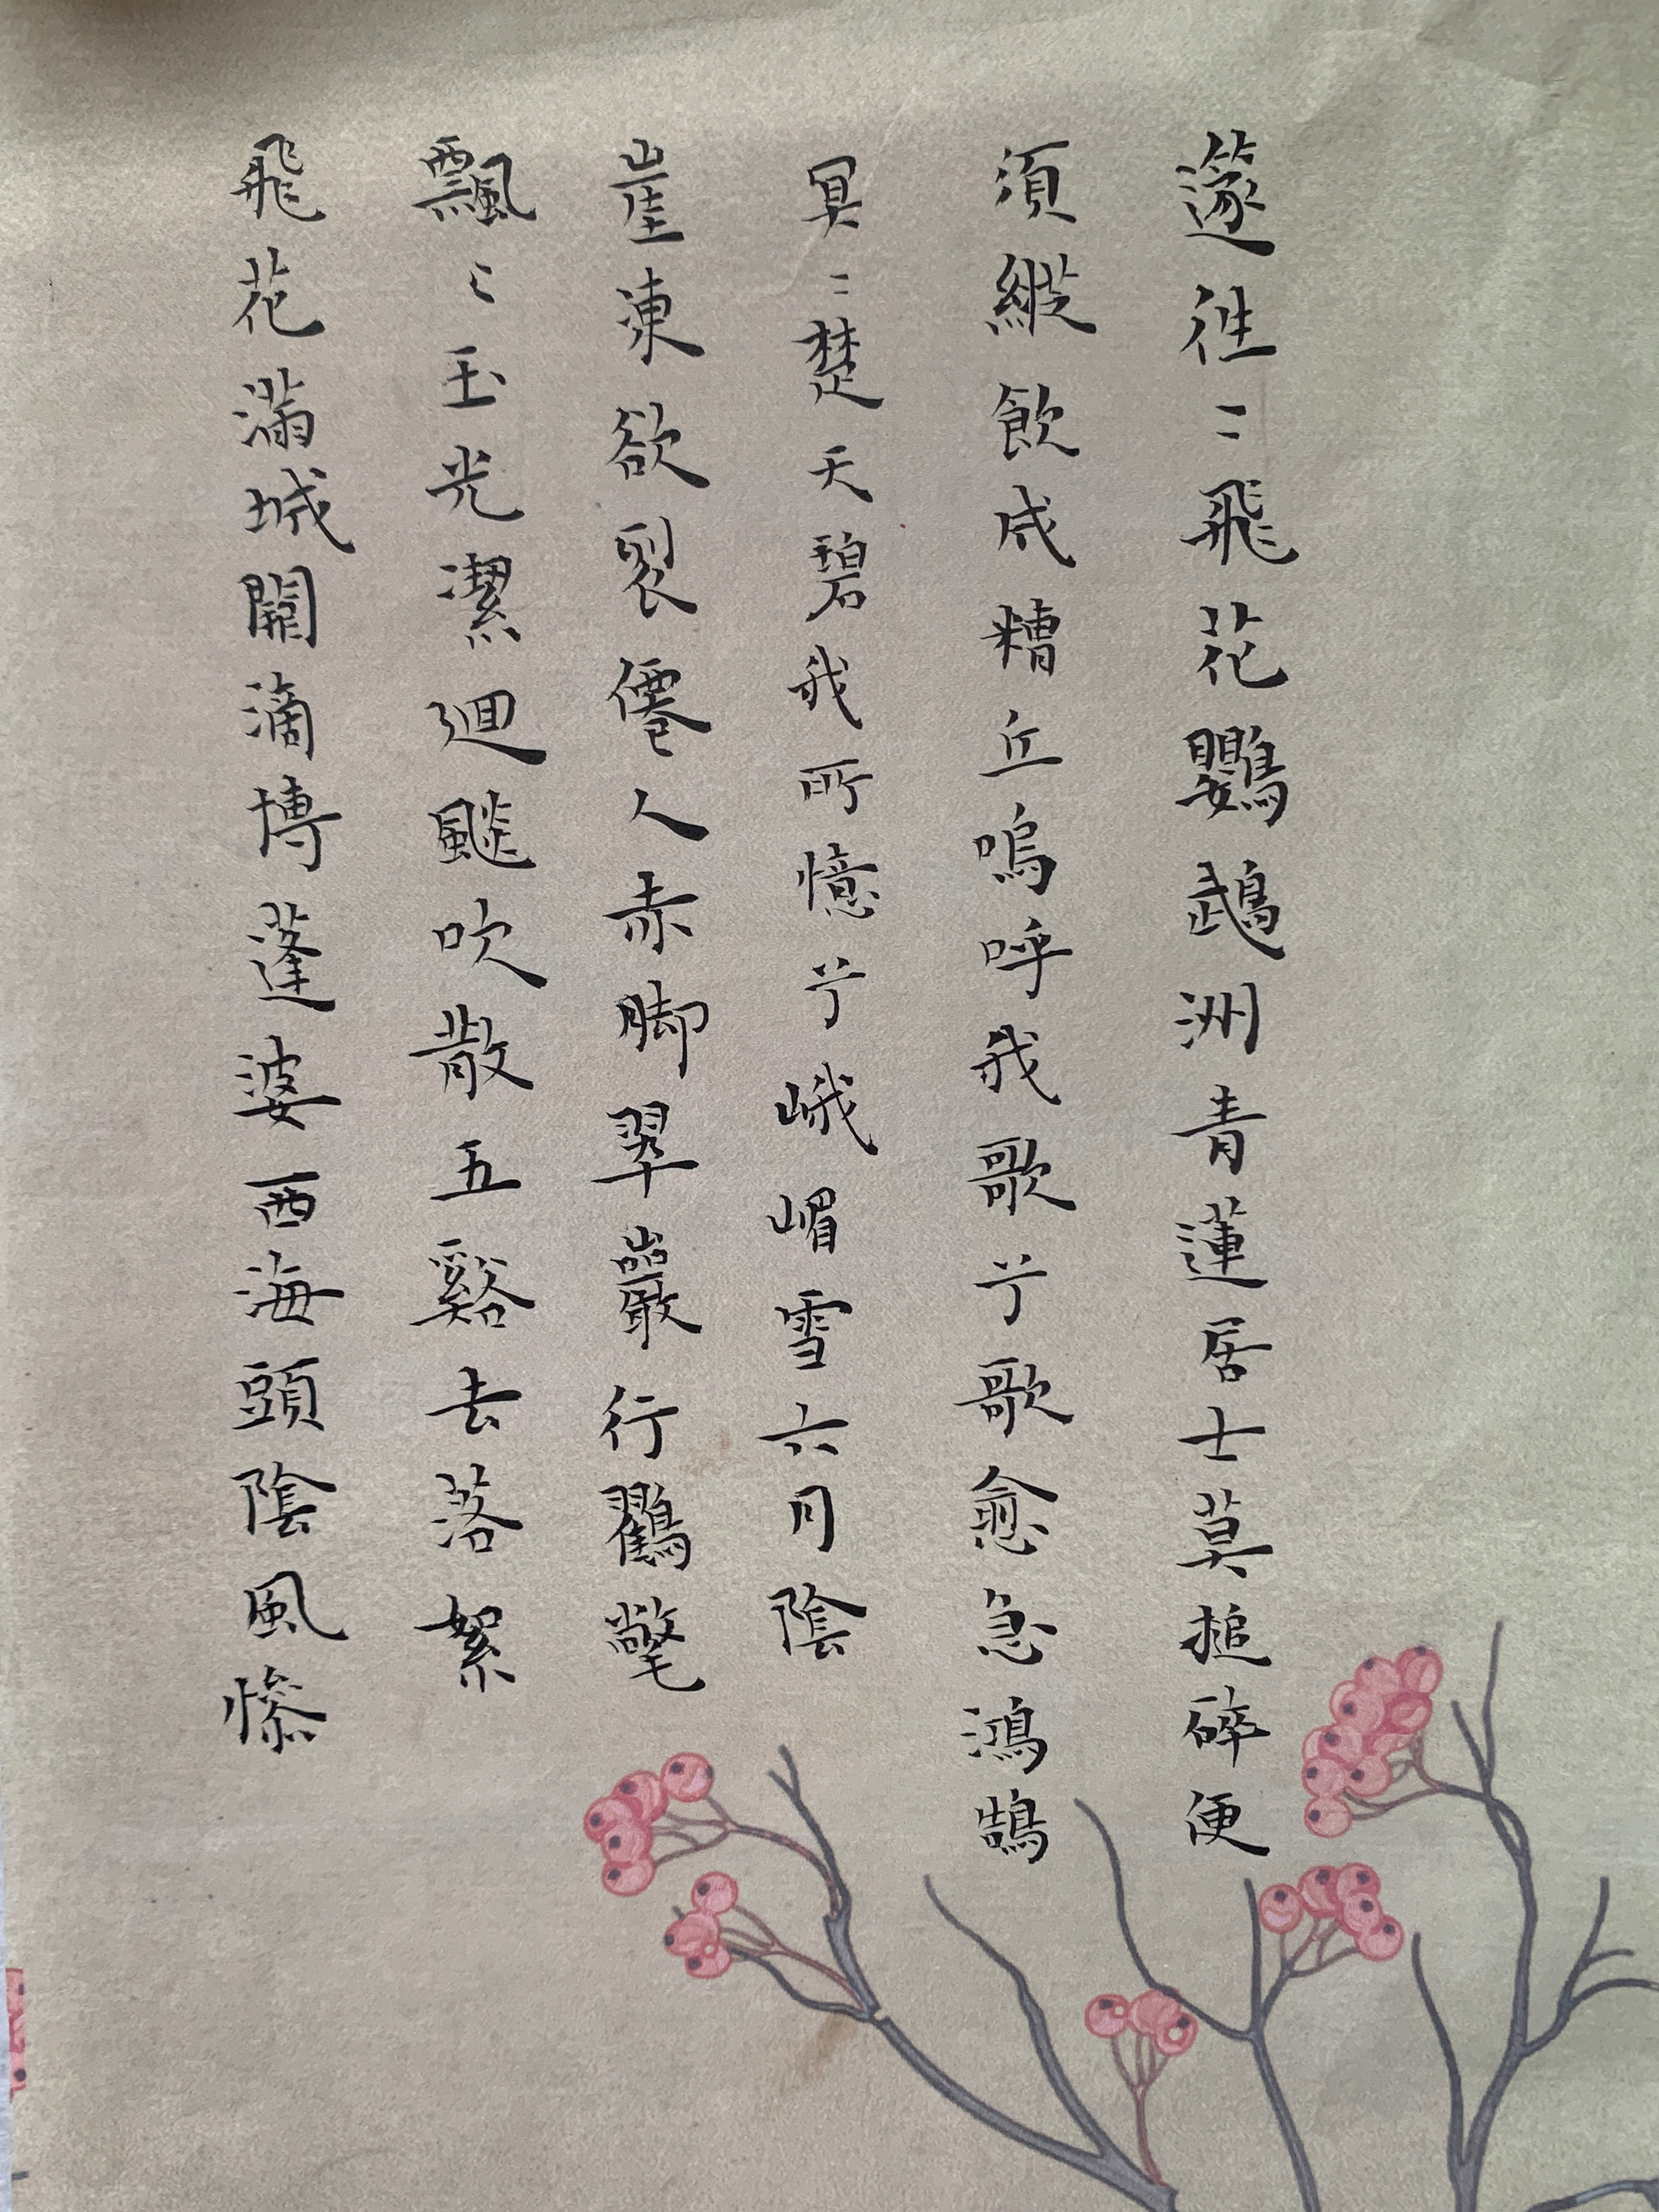 邃往〻飛花鸚鵡洲青蓮居士莫搥碎便
須縱飲成糟丘嗚呼我歌兮歌愈急鴻鵠
冥〻楚天碧我所憶兮峨嵋雪六月陰
崖凍欲裂僊人赤脚翠巖行鸖氅
飄〻玉光潔迴飈吹散五谿去落絮
飛花滿城關滴博蓬婆西海頭陰風慘